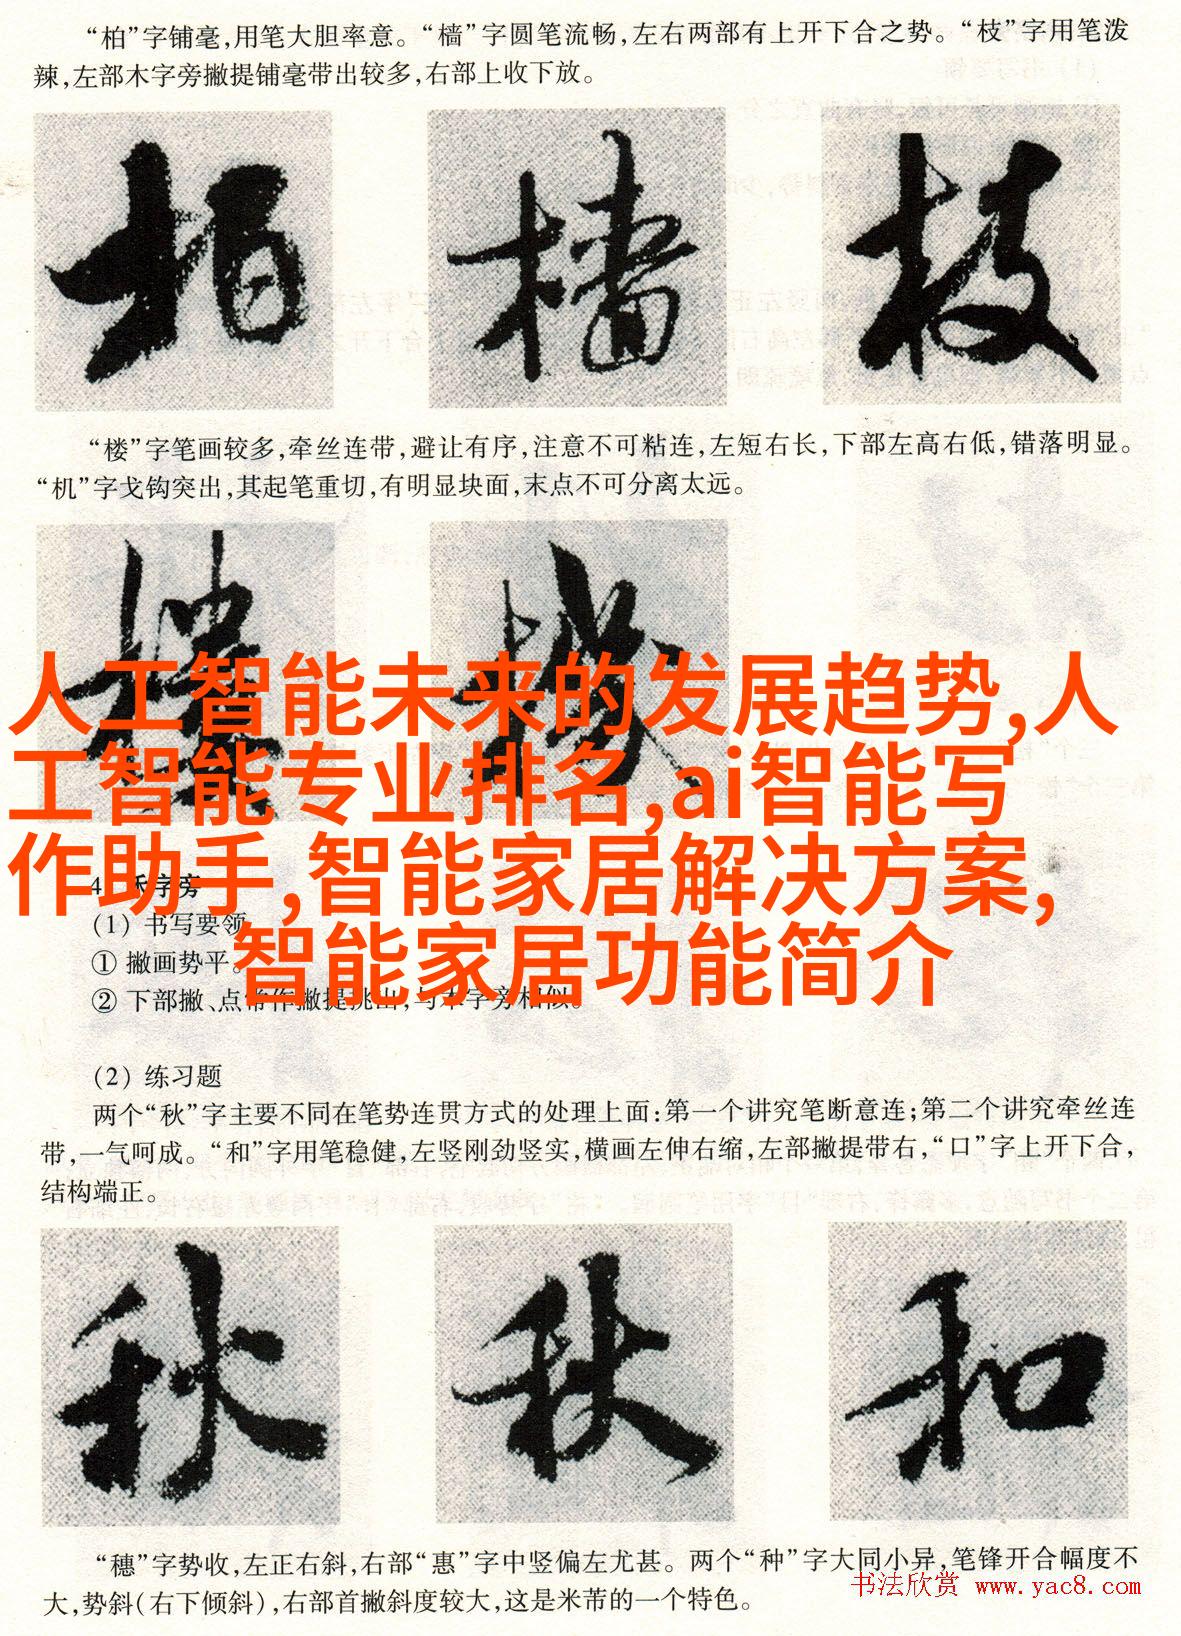 “柏”字铺毫,用笔大胆率意。“樯”字圆笔流畅,左右两部有上开下合之势。“枝”字用笔泼
辣,左部木字旁撇提铺毫带出较多,右部上收下放。
柏 樯 枝
“楼”字笔画较多,牵丝连带,避让有序,注意不可粘连,左短右长,下部左高右低,错落明显。
“机”字戈钩突出,其起笔重切,有明显块面,末点不可分离太远。
人工智能未来的发展趋势,人
工智能专业排名,ai智能写
作助手,智能家居解决方案,
智能家居功能简介
4. 禾字旁
(1) 书写要领
① 撇画势平。
② 下部撇、点常作撇提挑出,与木字旁相似。
(2) 练习题
两个“秋”字主要不同在笔势连贯方式的处理上面:第一个讲究笔断意连;第二个讲究牵丝连
带,一气呵成。“和”字用笔稳健,左竖刚劲竖实,横画左伸右缩,左部撇提带右,“口”字上开下合,
结构端正。
秋 秋 和
“穗”字势收,左正右斜,右部“惠”字中竖偏左尤甚。两个“种”字大同小异,笔锋开合幅度不
大,势斜(右下倾斜),右部首撇斜度较大,这是米芾的一个特色。
书法欣赏 www.yac8.com